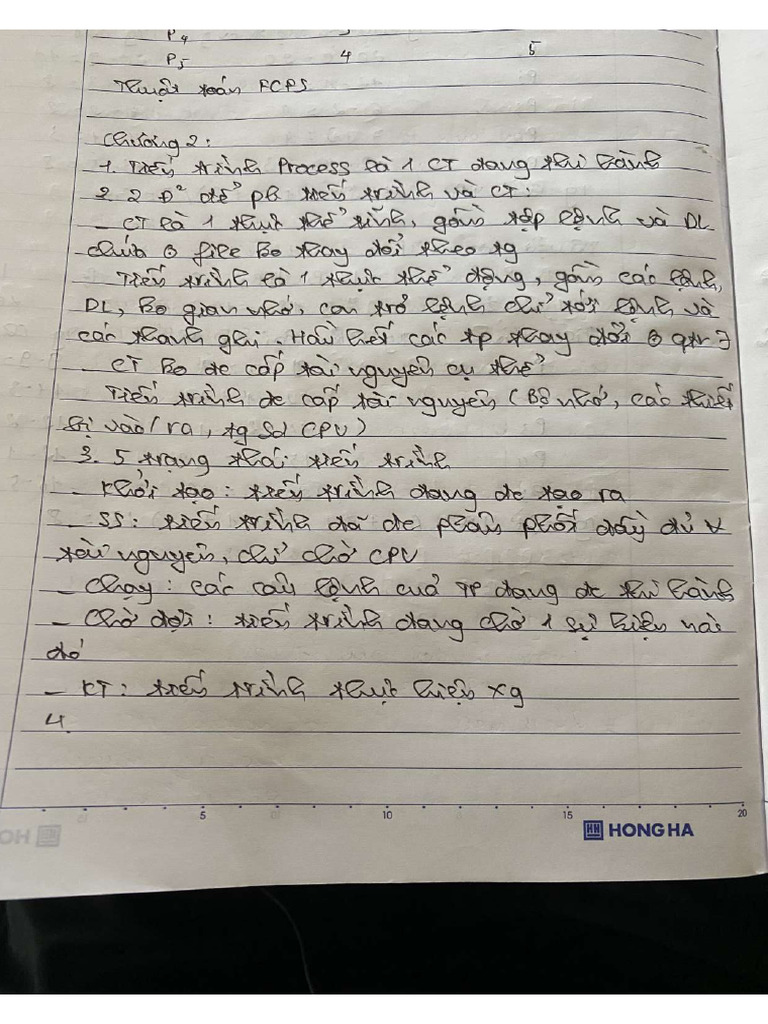 P4
P5 4 5
Thuật toán FCFS
Chương 2:
1. Tiến trình Process là 1 CT đang thi hành
2. 2 Đ² để pb tiến trình và CT:
- CT là 1 thực thể tĩnh, gồm tập lệnh và DL
chứa ở file ko thay đổi theo tg
- Tiến trình là 1 thực thể động, gồm các lệnh,
DL, ko gian nhớ, con trỏ lệnh chỉ tới lệnh và
các thanh ghi. Hầu hết các tp thay đổi
- CT ko đc cấp tài nguyên cụ thể
Tiến trình đc cấp tài nguyên (Bộ nhớ, các thiết
bị vào/ra, tg sd CPU)
3. 5 trạng thái tiến trình
- Khởi tạo: tiến trình đang đc tạo ra
- SS: tiến trình đã đc phân phối đầy đủ ∀
tài nguyên, chỉ chờ CPU
- Chạy: các câu lệnh của TP đang đc thi hành
- Chờ đợi: tiến trình đang chờ 1 sự kiện nài
đó
- KT: tiến trình thực hiện xg
4.
5 10 15 20
HH HONG HA